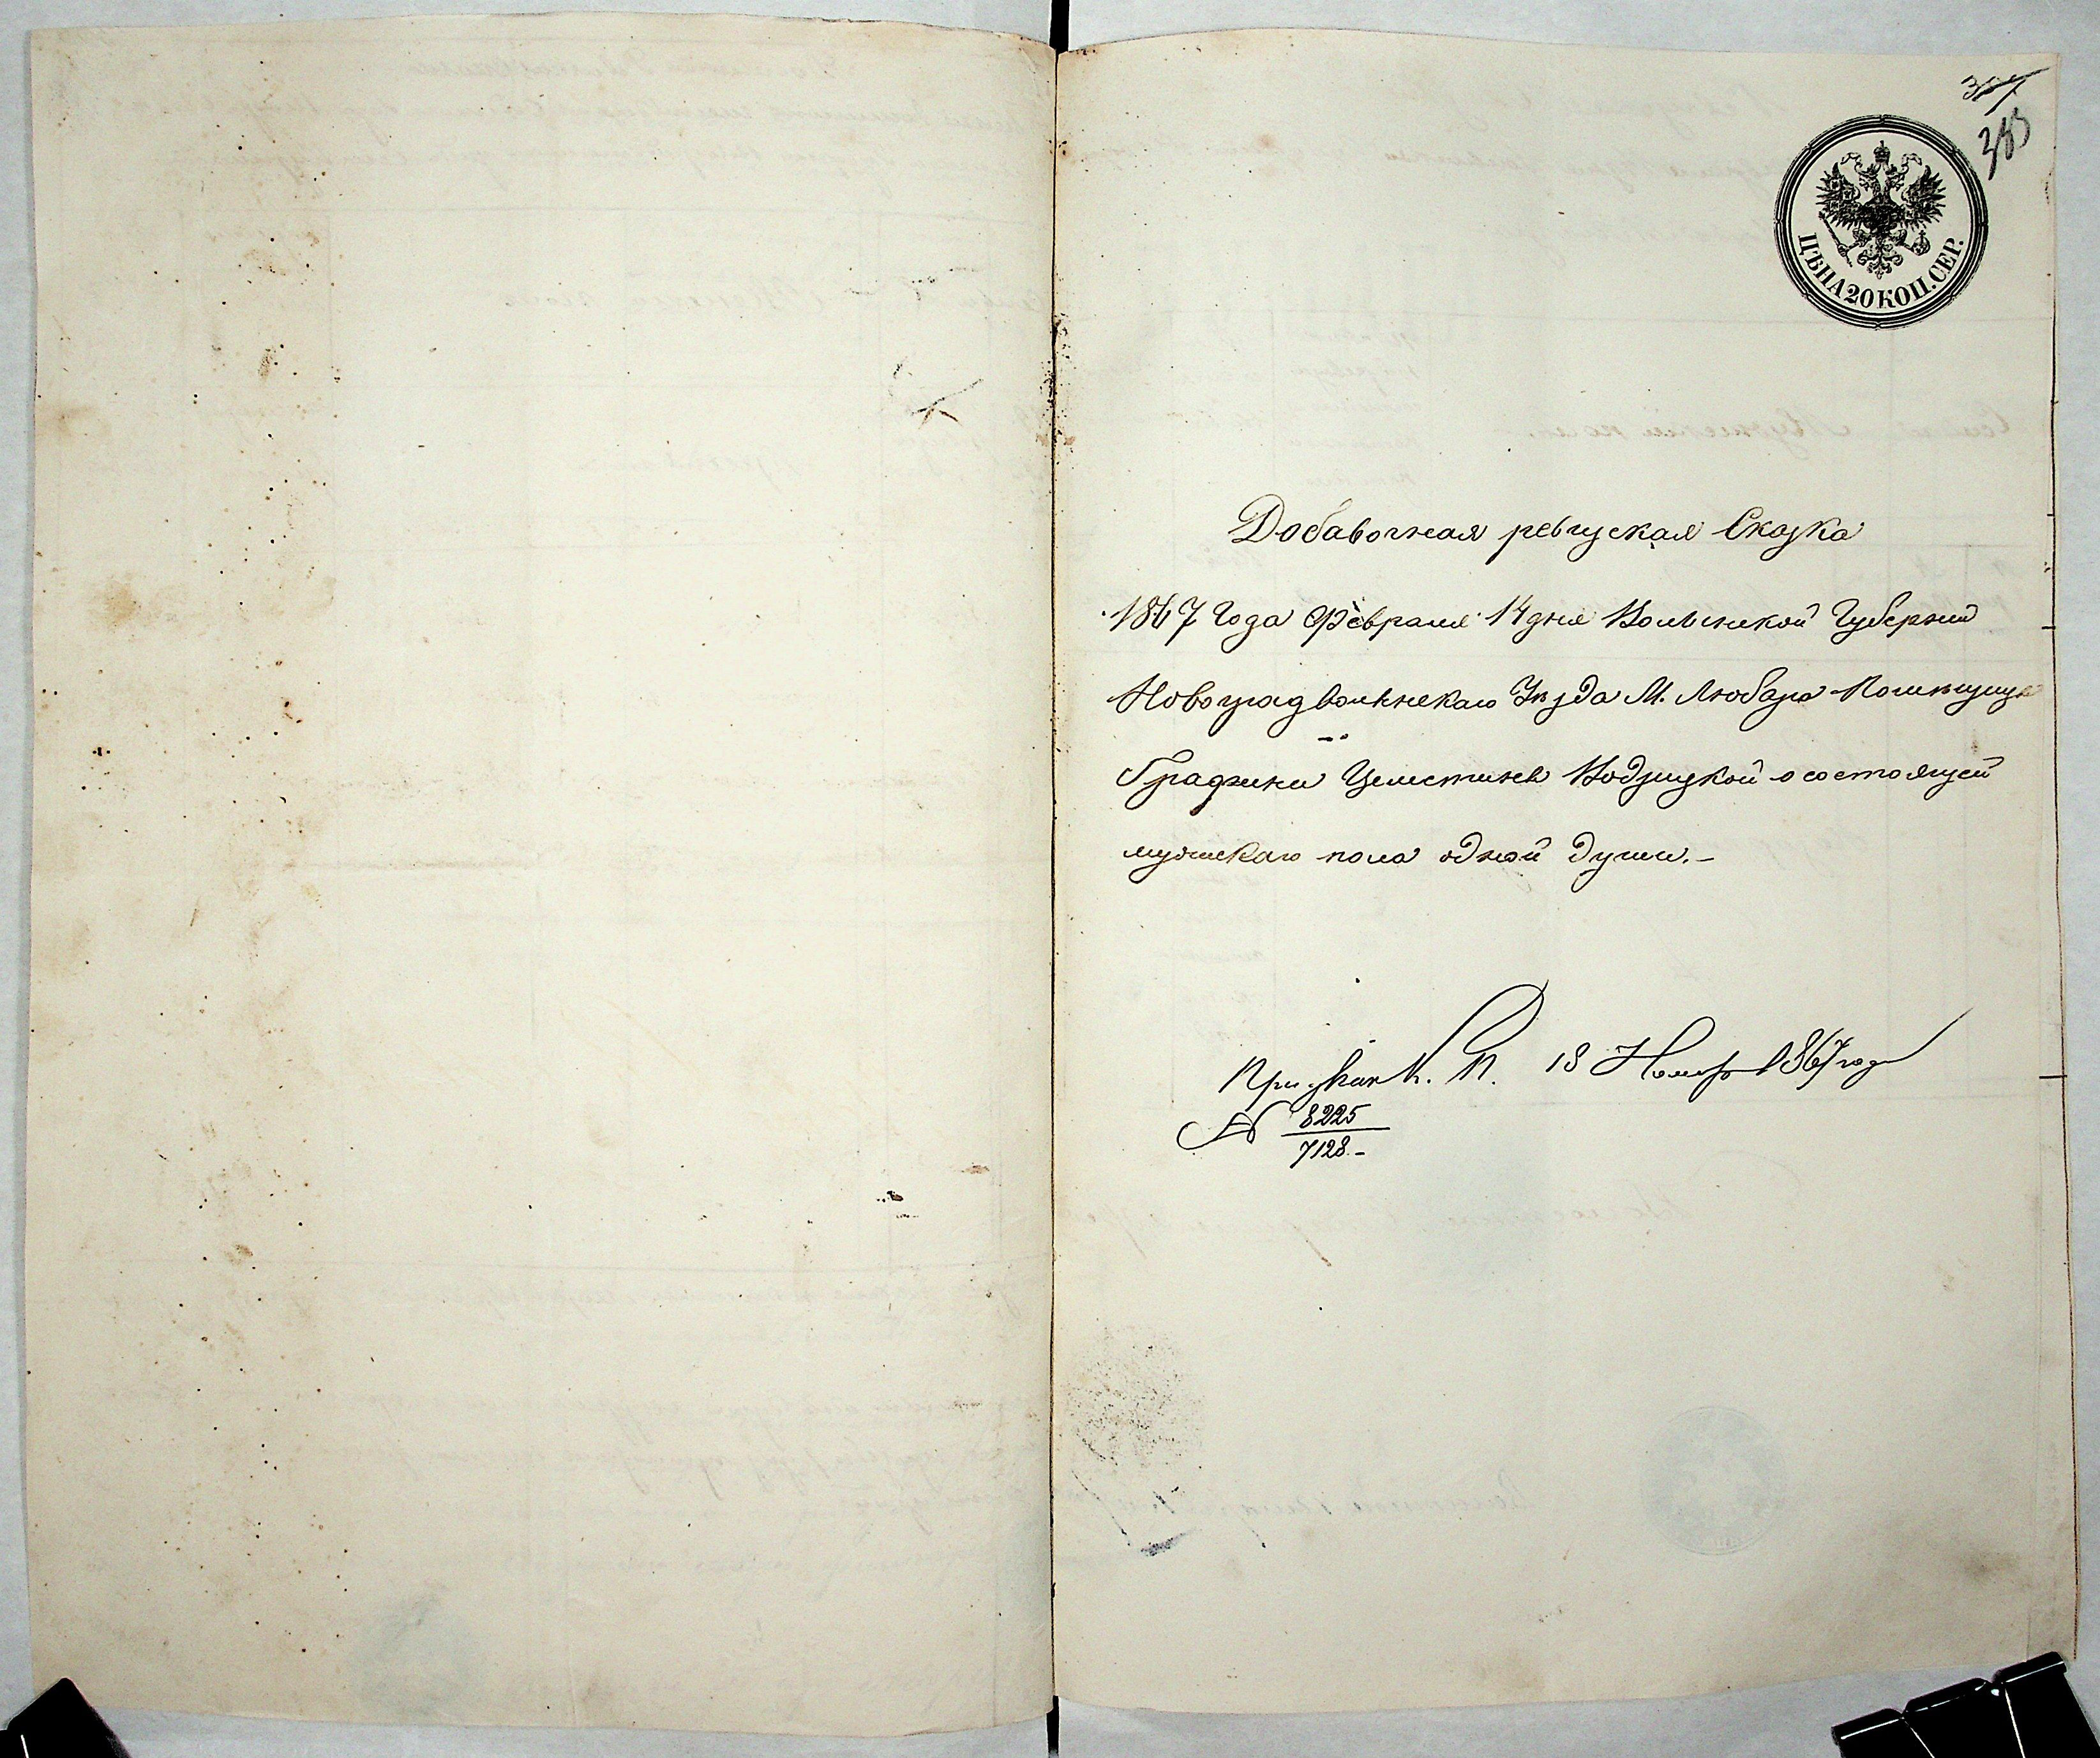 383
ЦѢНА 20 КОП. СЕР.
Добавочная ревизская Сказка
1867 Года Февраля 14 дня Волынской Губернии
Новоградволынскаго Уѣзда М. Любара Помѣщицы
Графини Целестины Водзицкой о состоящей
мужскаго пола одной души.-
При указ К. П. 18 Ноября 1867 года
№ 8225
7128.-